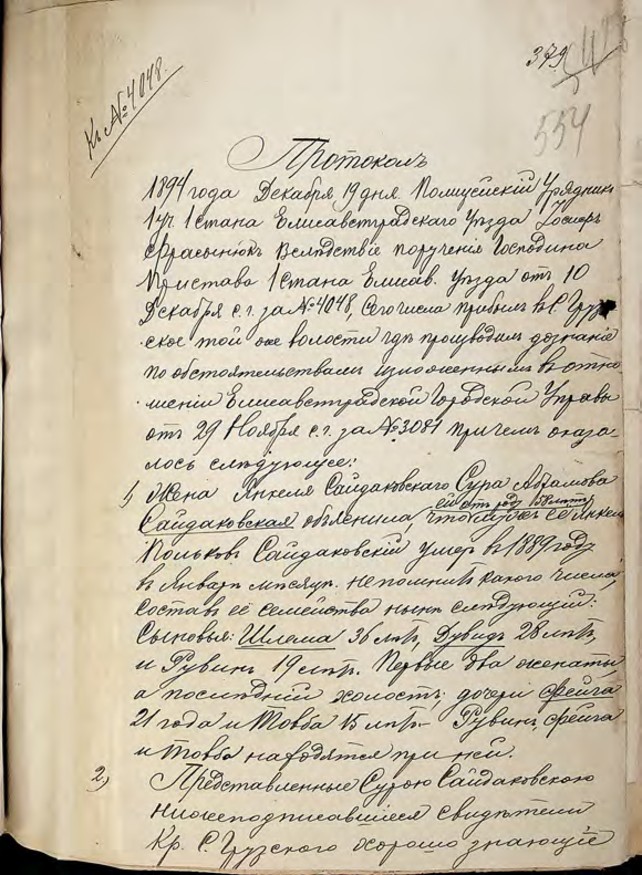 379
554
Къ №4048.
Протоколъ
1894 года Декабря 19 дня. Полицейскій Урядникъ
1 уч. 1 Стана Елисаветградскаго Уѣзда Іосифъ
Вслѣдствіе порученія Господина
Пристава 1 Стана Елисав. Уѣзда отъ 10
Декабря с. г. за №4048, Сего числа прибылъ въ С. Груз-
ское той же волости гдѣ производилъ дознаніе
по обстоятельствамъ изложеннымъ въ отно-
шеніи Елисаветградской Городской Управы
отъ 29 Ноября с. г. за №3081 причемъ оказа-
лось слѣдующее:
1) Жена Янкеля Сайдаковскаго Сура Абрамова
ей отъ роду 58 лѣтъ
Сайдаковская объяснила, что мужъ ея Янкель
Польковъ Сайдаковскій умеръ въ 1889 году
въ Январѣ мѣсяцѣ. Не помнитъ какого числа,
составъ её семейства нынѣ слѣдующій:
Сыновья: Шлема 36 лѣтъ, Дувидъ 28 лѣтъ,
и Рувинъ 19 лѣтъ. Первые два женаты,
а послѣдній холостъ; дочери Фейга
21 года и Товба 15 лѣтъ - Рувинъ, Фейга
и Товба находятся при ней.
2) Представленные Сурою Сайдаковскою
нижеподписавшіеся свидѣтели
Кр. С. Грузского хорошо знающіе